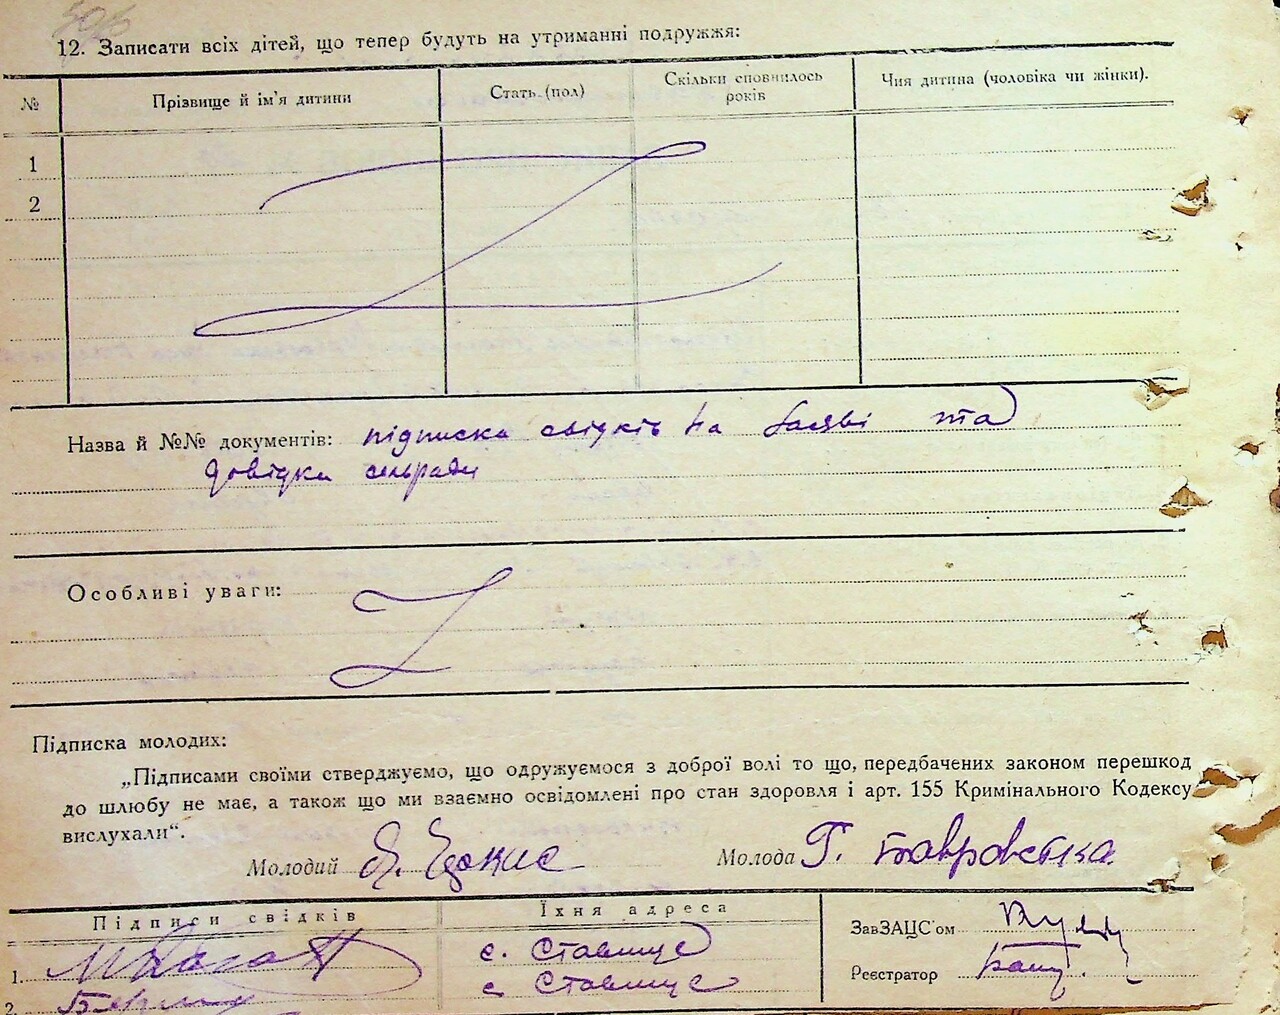 12. Записати всіх дітей, що тепер будуть на утриманні подружжя:
№ Прізвище й ім'я дитини Стать (пол) Скільки сповнилось років Чия дитина (чоловіка чи жінки).
1
2
Назва й №№ документів: підписка свідків на заяві та
довідка сільради
Особливі уваги:
Підписка молодих:
„Підписами своїми стверджуємо, що одружуємося з доброї волі то що, передбачених законом перешкод
до шлюбу не має, а також що ми взаємно освідомлені про стан здоровля і арт. 155 Кримінального Кодексу
вислухали“.
Молодий Молода Г.
Підписи свідків Їхня адреса ЗавЗАЦС'ом
1. с. Ставище Реєстратор
2. с. Ставище